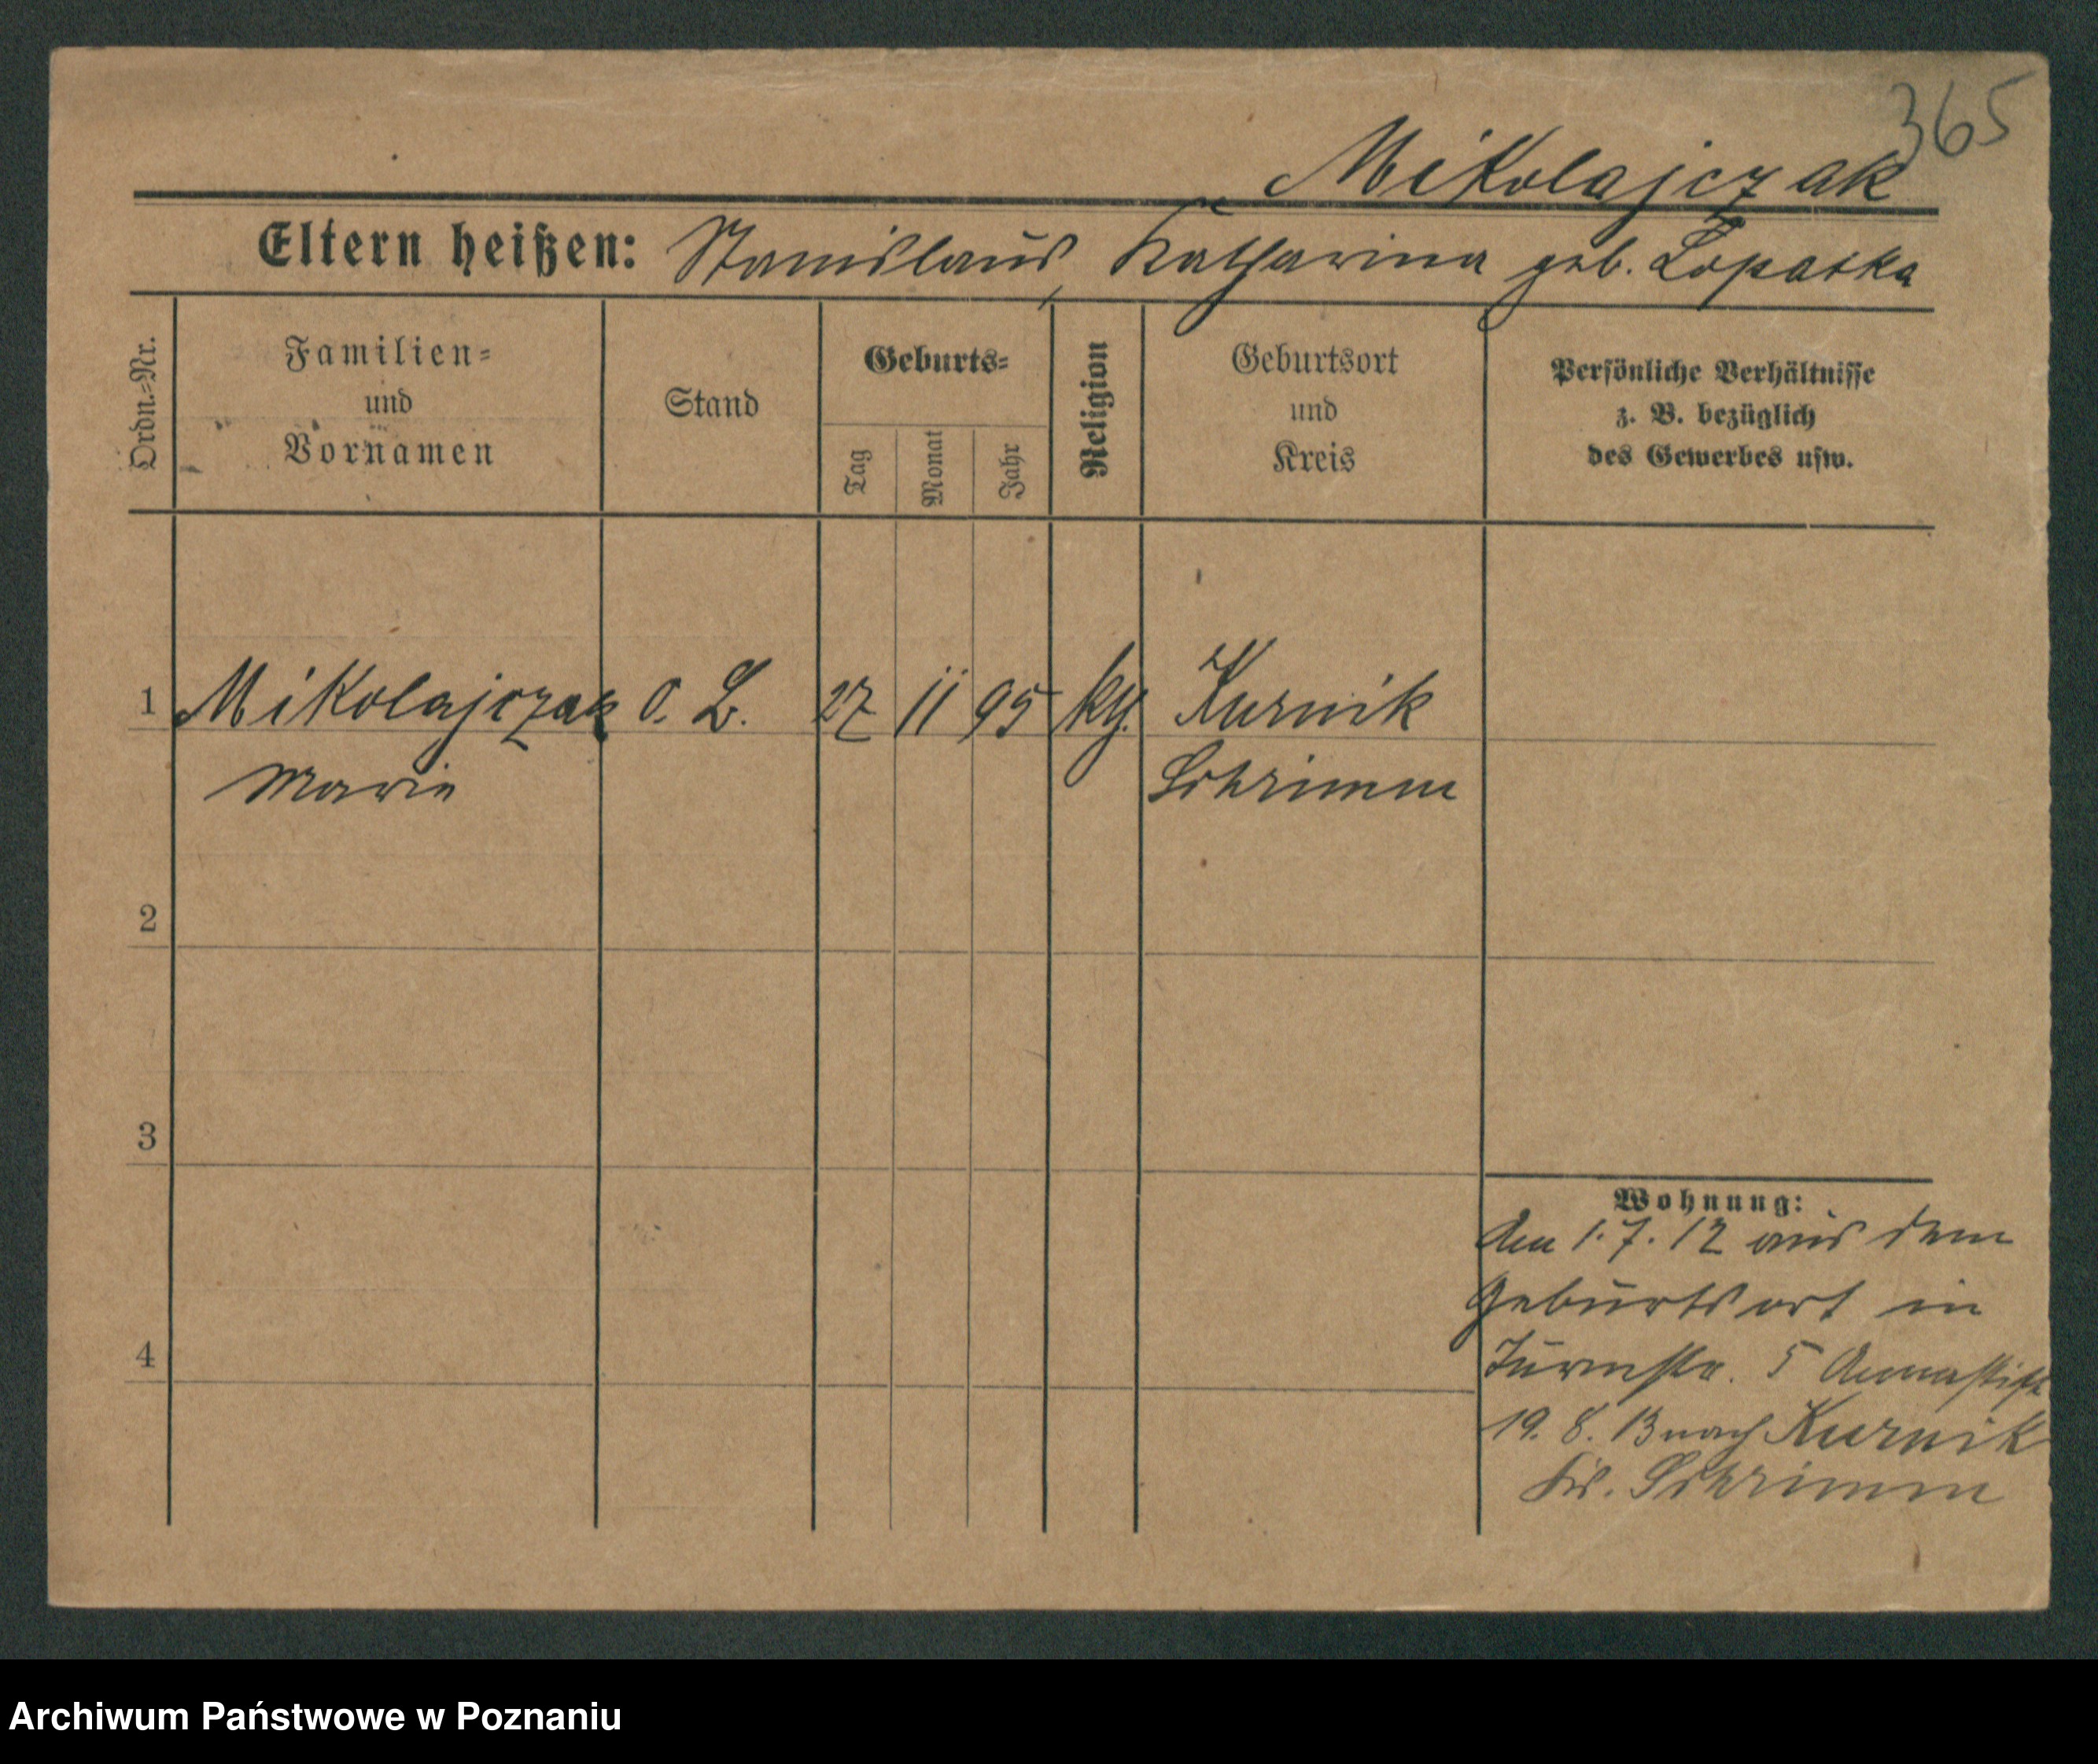 365
Mikolajczak
Eltern heißen: Stanislaus, Katharina geb. Lopatka
Ordn.-Nr.
Familien-
und
Vornamen
Stand
Geburts-
Tag
Monat
Jahr
Religion
Geburtsort
und
Kreis
Persönliche Verhältnisse
z. B. bezüglich
des Gewerbes usw.
1 Mikolajczak o. B. 27 11 95 kth. Kurnik
Marie Schrimm
2
3
4
Wohnung:
Am 1.7.12 aus dem
Geburtsort in
Turmstr. 5 Annastift
19. 8. 13 nach Kurnik
Krs. Schrimm
Archiwum Państwowe w Poznaniu